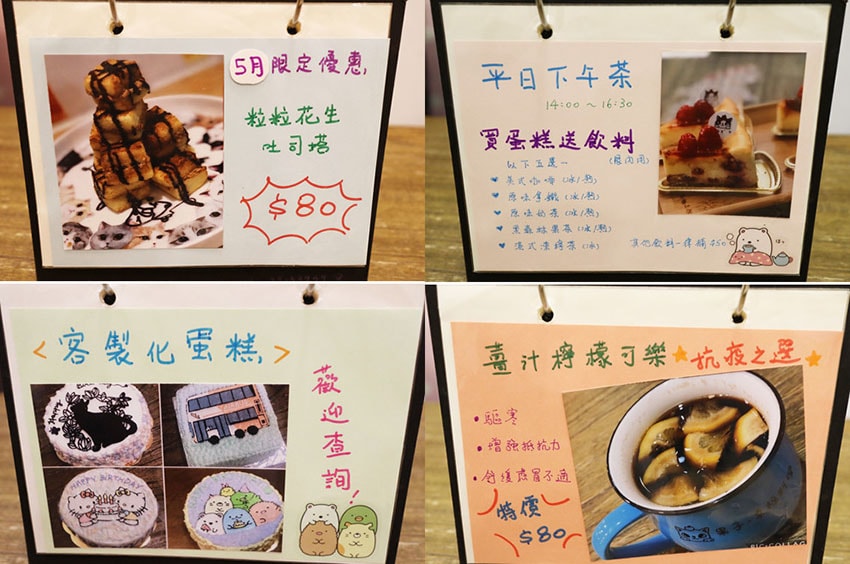 5月限定優惠
粒粒花生
吐司塔
$80
平日下午茶
14:00 ~ 16:30
買蛋糕送飲料
(限內用)
以下五選一
美式咖啡 (冰/熱)
原味拿鐵 (冰/熱)
原味奶茶 (冰/熱)
港式凍檸茶 (冰)
其他飲料一律折$50
<客製化蛋糕>
歡迎查詢!
HAPPY BIRTHDAY
薑汁檸檬可樂
抗疫之選
驅寒
增強抵抗力
舒緩感冒不適
特價
$80